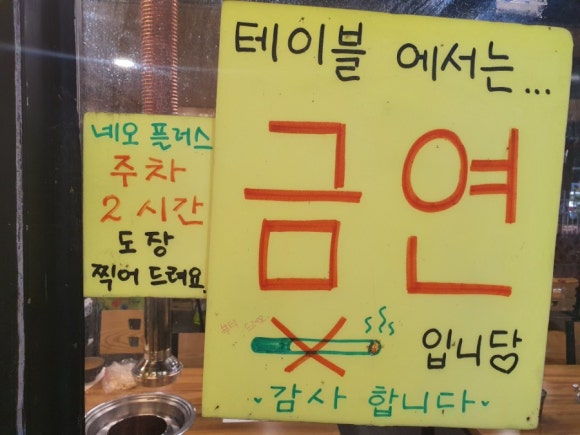 테이블 에서는...
금연
입니담♡
감사 합니다
네오 플러스
주차
2 시간
도장
찍어 드려요.